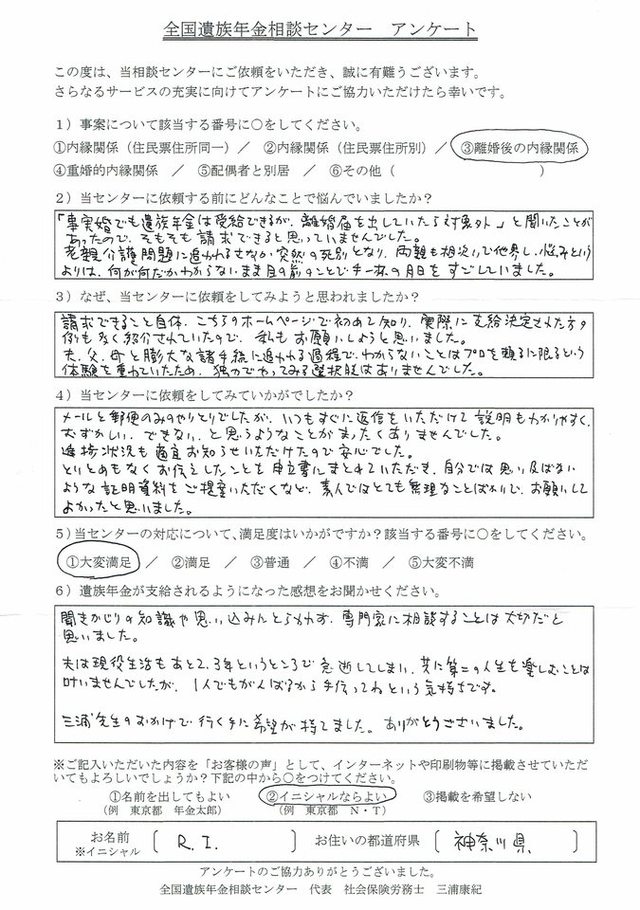 全国遺族年金相談センター　アンケート
この度は、当相談センターにご依頼をいただき、誠に有難うございます。
さらなるサービスの充実に向けてアンケートにご協力いただけたら幸いです。
1）事案について該当する番号に○をしてください。
①内縁関係（住民票住所同一）　／　②内縁関係（住民票住所別）／　③離婚後の内縁関係
④重婚的内縁関係　／　⑤配偶者と別居　／　⑥その他（　　　　　　　　）
2）当センターに依頼する前にどんなことで悩んでいましたか？
「事実婚でも遺族年金は受給できるが、離婚届を出していたら対象外」と聞いたことが
あったので、そもそも請求できると思っていませんでした。
老親介護問題に追われるさなか突然の死別となり、両親も相次いで他界し、悩みという
よりは、何が何だかわからないまま目の前のことで手一杯の月日をすごしていました。
3）なぜ、当センターに依頼をしてみようと思われましたか？
請求できること自体、こちらのホームページで初めて知り、実際に支給決定された方の
例も多く紹介されていたので、私もお願いしようと思いました。
夫、父、母と膨大な諸手続に追われる過程で、わからないことはプロを頼るに限るという
体験を重ねていたため、独力でやってみる選択肢はありませんでした。
4）当センターに依頼をしてみていかがでしたか？
メールと郵便のみのやりとりでしたが、いつもすぐに返信をいただけて説明もわかりやすく、
むずかしい、できない、と思うようなことがまったくありませんでした。
進捗状況も適宜お知らせいただけたので安心でした。
とりとめもなくお伝えしたことを申立書にまとめていただき、自分では思い及ばない
ような証明資料をご提案いただくなど、素人ではとても無理なことばかりで、お願いして
よかったと思いました。
5）当センターの対応について、満足度はいかがですか？該当する番号に○をしてください。
①大変満足　／　②満足　／　③普通　／　④不満　／　⑤大変不満
6）遺族年金が支給されるようになった感想をお聞かせください。
聞きかじりの知識や思い込みにとらわれず、専門家に相談することは大切だと
思いました。
夫は現役生活もあと2、3年というところで急逝してしまい、共に第二の人生を楽しむことは
叶いませんでしたが、1人でもがんばるから手伝ってねという気持ちです。
三浦先生のおかげで行く手に希望が持てました。ありがとうございました。
※ご記入いただいた内容を「お客様の声」として、インターネットや印刷物等に掲載させていただ
いてもよろしいでしょうか？下記の中から○をつけてください。
①名前を出してもよい　②イニシャルならよい　③掲載を希望しない
（例　東京都　年金太郎）　（例　東京都　N・T）
お名前　〔　R.I.　〕　お住いの都道府県　〔　神奈川県　〕
※イニシャル
アンケートのご協力ありがとうございました。
全国遺族年金相談センター　代表　社会保険労務士　三浦康紀